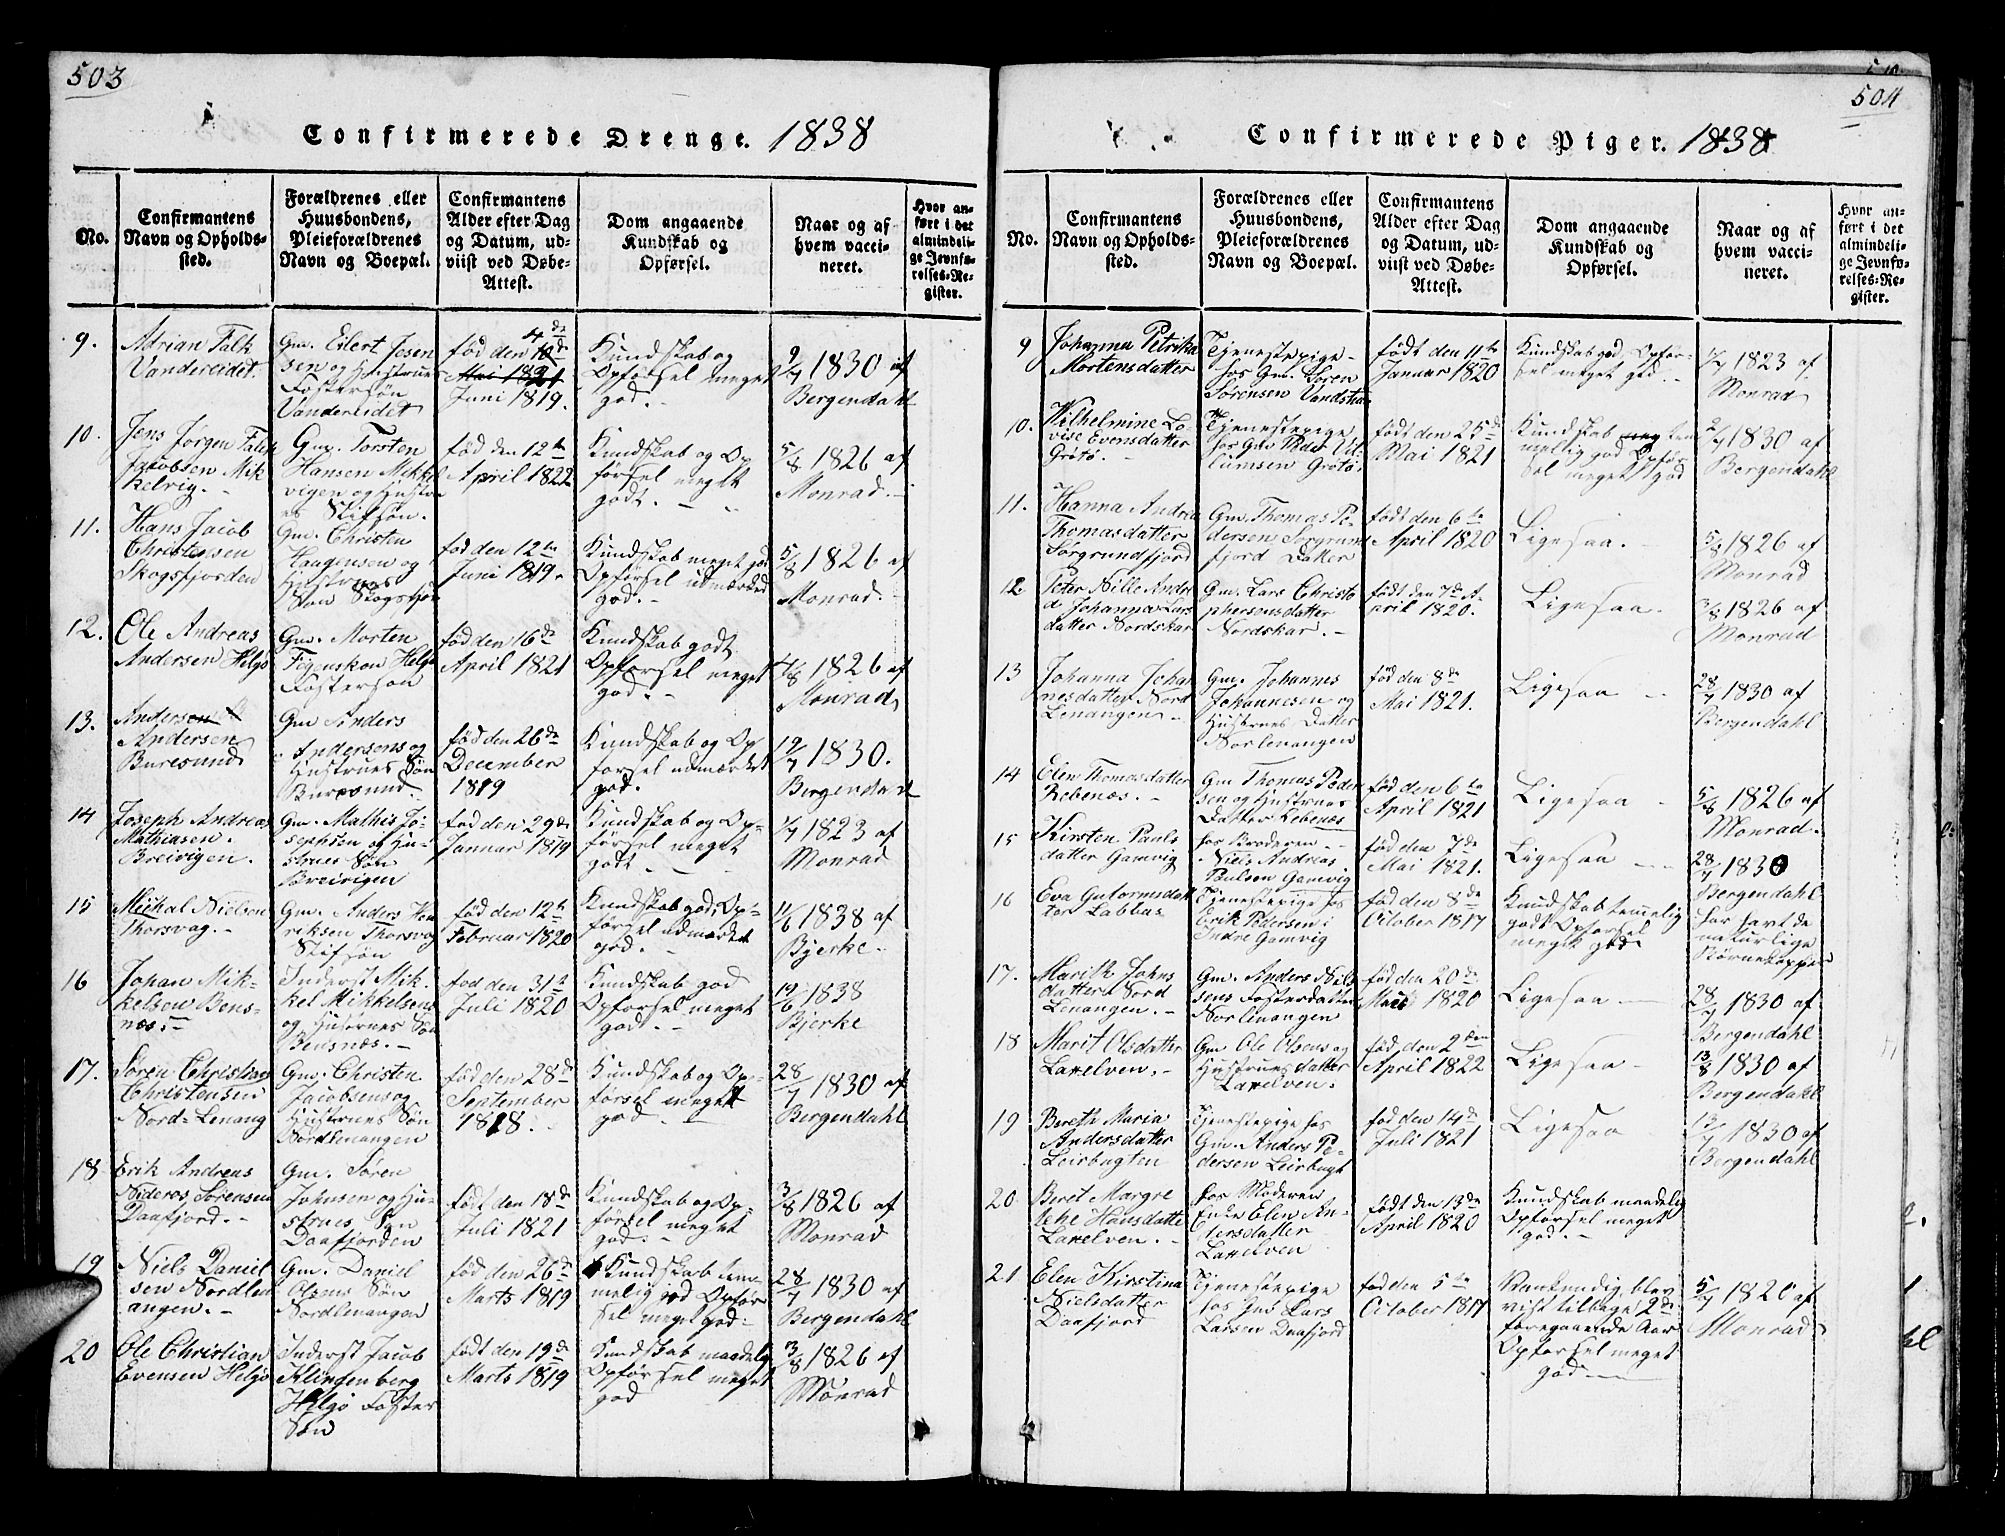 503
Confirmerede Drenge. 1838
No.
Confirmantens
Navn og Opholds-
sted.
Forældrenes eller
Huusbondens,
Pleieforældrenes
Navn og Boepæl.
Confirmantens
Alder efter Dag
og Datum, ud-
viist ved Døbe-
Attest.
Dom angaaende
Kundskab og
Opførsel.
Naar og af
hvem vacci-
neret.
Hvor an-
ført i det
almindeli-
ge Jevnfø-
relses-Re-
gister.
9.
Adrian Falk
Vandereidet.
Gm. Eilert Jesen
sen og Hustrues
Fostersøn
Vandereidet
født den 4de
Mai 1821
Juni 1819.
Kundskab og
Opførsel meget
god.
9/7 1830 af
Bergendahl
10.
Jens Jørgen Falch
Jacobsen Mik
kelvig.
Gm. Torsten
Hansen Mikkel
vigen og Hustru
es Stifsøn.
fød den 12te
April 1822
Kundskab og Op
førsel meget
godt.
5/8 1826 af
Monrad.
11.
Hans Jacob
Christensen
Skogsfjorden
Gm. Christen
Haagensen og
Hustrues
Søn Skogsfjor
fød den 12te
Juni 1819.
Kundskab meget god
Opførsel udmærked
god.
5/8 1826 af
Monrad.
12.
Ole Andreas
Andersen Helgø
Gm. Morten
Figenskou Helgø
Fostersøn
fød den 16de
April 1821
Kundskab godt
Opførsel meget
god.
4/8 1826 af
Monrad
13.
Andersen
Andersen
Buresund
Gm Anders
Andersens og
Hustrues Søn
Buresund
fød den 26de
December
1819
Kundskab og Op
førsel udmærket
god.
12/7 1830.
Bergendahl
14
Joseph Andreas
Mathiasen.
Breivigen.
Gm. Mathis Jo-
sephsen og Hu-
strues Søn
Breivigen
fød den 29de
Januar 1819
Kundskab og Op-
førsel meget
godt.
1/7 1823 af
Monrad
15
Michal Nielsen
Thorsvag.
Gm. Anders Hen
riksen Thorsvag
Stifsøn
fød den 12te
Februar 1820
Kundskab god, Op-
førsel udmærket
god.
11/6 1838 af
Bjerke.
16
Johan Mik-
kelsen Bens-
næs.
Inderst Mik
kel Mikkelsens
og Hustrues Søn
Bensnæs.
fød den 31te
Juli 1820
Kundskab god
Opførsel meget
god.
19/6 1838
Bjerke
17.
Søren Christian
Christensen
Nord-Lenang
Gm. Christen
Jacobsens og
Hustrues Søn
Nordlenangen
fød den 28de
September
1818.
Kundskab og Op-
førsel meget
god
28/7 1830 af
Bergendahl
18
Erik Andreas
Nideros Sørensen
Daafjord.
Gm. Søren
Johnsen og Hu-
strues Søn
Daafjorden
født den 18de
Juli 1821
Kundskab og Op-
førsel meget
god.
3/8 1826 af
Monrad
19
Niels Daniel
sen Nordlen
angen.
Gm. Daniel
Olsens Søn
Nordlenangen
fød den 26de
Marts 1819
Kundskab tem-
melig god Opfør
sel meget god.
28/7 1830 af
Bergendahl
20
Ole Christian
Evensen Helgø
Inderst Jacob
Klingenberg
Helgø Foster
Søn
født den 19de
Marts 1819
Kundskab maadelig
Opførsel meget
god
3/8 1826 af
Monrad
504
Confirmerede Piger. 1838
No.
Confirmantens
Navn og Opholds-
sted.
Forældrenes eller
Huusbondens,
Pleieforældrenes
Navn og Boepæl.
Confirmantens
Alder efter Dag
og Datum, ud-
viist ved Døbe-
Attest.
Dom angaaende
Kundskab og
Opførsel.
Naar og af
hvem vacci-
neret.
Hvor an-
ført i det
almindeli-
ge Jevnfø-
relses-Re-
gister.
9
Johanna Petrika
Mortensdatter
Tjenestepige
hos Gm. Søren
Sørensen
født den 11te
Januar 1820
Kundskab god, Opfør-
sel meget god.
1/7 1823 af
Monrad
10.
Wilhelmine Lo-
vise Evensdatter
Grøtø.
Tjenestepige
hos Gm Peder
Grøtø
født den 25de
Mai 1821
Kundskab tem
melig god Opfør
sel meget god
2/7 1830 af
Bergendahl
11.
Hanna Andrea
Thomasdatter
Sørgrundfjord
Gm. Thomas Pe-
dersen Sørgrund
fjord Datter
født den 6te
April 1820
Ligesaa.
5/8 1826 af
Monrad
12
Peter Nille Andre
a Johanna Lars
datter Nordskar
Gm. Lars Christo
phersens datter
Nordskar.
født den 7de A-
pril 1820.
Ligesaa.
3/8 1826 af
Monrad
13
Johanna Johan
nesdatter Nord
Lenangen
Gm. Johannes
Johannesen og
Hustrues Datter
Norlenangen
fød den 8de
Mai 1821.
Ligesaa
28/7 1830 af
Bergendahl
14
Elen Thomasdatter
Rebenæs.
Gm Thomas Peder
sen og Hustrues
Datter Rebenæs
fød den 6te
April 1821
Ligesaa
5/8 1826 af
Monrad.
15
Kirsten Pauls
datter Gamvig
hos Broderen
Niels Andreas
Paulsen Gamvig
fød den 7de
Mai 1821.
Ligesaa
28/7 1830
Bergendahl
16
Eva Gutormsdat
ter Labbas
Tjenestepige hos
Erik Pedersen
Indre Gamvig
fød den 8de
October 1817
Kundskab temelig
godt Opførsel
meget god
har havt de
naturlige
Børnekopper
17.
Marith Johns
datter Nord
Lenangen.
Gm. Anders Nils
sens Fosterdatter
Norlenangen
fød den 20de
Mai 1820
Ligesaa
28/7 1830 af
Bergendahl
18
Marit Olsdatter
Laxelven.
Gm Ole Olsens og
Hustrues datter
Laxelven.
fød den 2den
April 1822
Ligesaa
13/8 1830 af
Bergendahl
19
Bereth Maria
Andersdatter
Leirbugten
Tjenestepige hos
Gm. Anders Pe-
dersen Leirbugt
fød den 14de
Juli 1821
Ligesaa
13/7 1830 af
Bergendahl
20
Beret Margre
the Hansdatter
Laxelven.
hos Moderen
Enke Elen An-
dersdatter
Laxelven
født den 13de
April 1820
Kundskab maadelig
Opførsel meget
god.
21
Elen Kirstina
Nielsdatter
Daafjord
Tjenestepige
hos Gm Lars
Larsen Daafjord
fød den 5te
October 1817
Vankundig, blev
vist tilbage 2de
foregaaende Aar
Opførsel meget
god
5/7 1826 af
Monrad